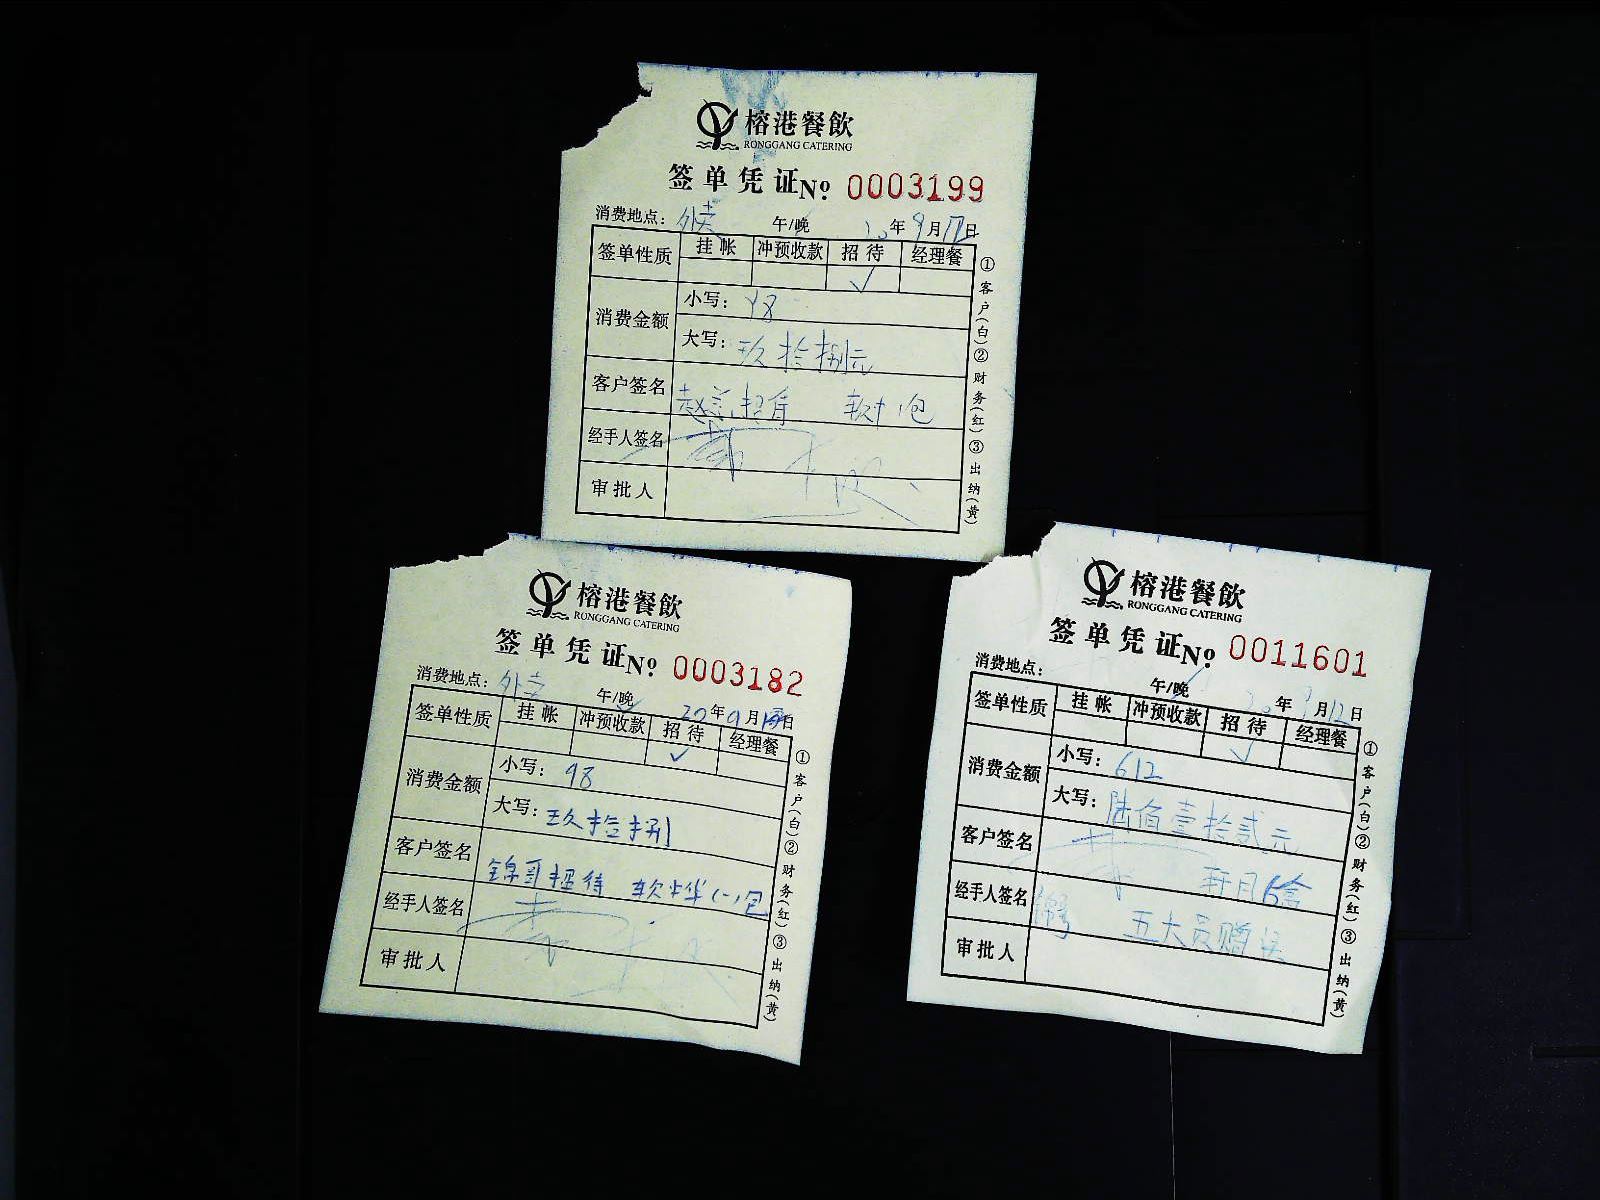 榕港餐飲
RONGGANG CATERING
签单凭证 No 0003199
消费地点: 外卖 午/晚 20年9月17日
签单性质 挂帐 冲预收款 招待 经理餐
✓
消费金额 小写: 98
大写: 玖拾捌元
客户签名 赵总招待 软中1包
经手人签名
审批人
①客户(白)②财务(红)③出纳(黄)
榕港餐飲
RONGGANG CATERING
签单凭证 No 0003182
消费地点: 外卖 午/晚 20年9月 日
签单性质 挂帐 冲预收款 招待 经理餐
✓
消费金额 小写: 98
大写: 玖拾捌
客户签名 锦哥招待 软中华(一)包
经手人签名
审批人
①客户(白)②财务(红)③出纳(黄)
榕港餐飲
RONGGANG CATERING
签单凭证 No 0011601
消费地点: 午/晚 20年9月12日
签单性质 挂帐 冲预收款 招待 经理餐
✓
消费金额 小写: 612
大写: 陆佰壹拾贰元
客户签名 6盒
经手人签名 五大员赠送
审批人
①客户(白)②财务(红)③出纳(黄)